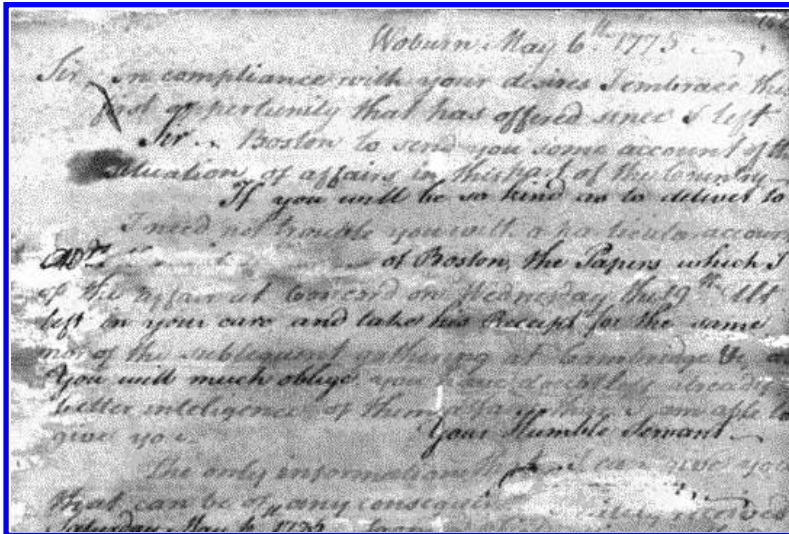 Woburn May 6th. 1775
Sir In compliance with your desires I embrace this
first oppertunity that has offered since I left
Sir Boston to send you some account of the
situation of affairs in this Part of the Country
If you will be so kind as to deliver to
I need not trouble you with a particular account
of Boston, the Papers which I
of the affair at Concord on Wednesday the 19th Ult
left in your care and take his Receipt for the same
nor of the subsequent gathering at Cambridge &
You will much oblige you have doubtless already
better inteligence of them than I am able to
give you Your Humble Servant
The only information that I can give you
that can be of any
Saturday May 6. 1775